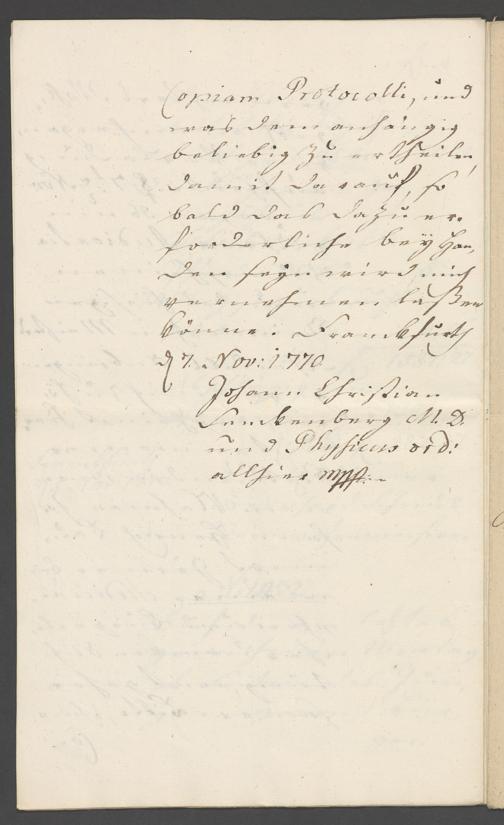 Copiam Protocolli, und
was dem anhängig
beliebig zu ertheilen,
damit darauf, so
bald das dazu er-
forderliche bey Han-
den seyn wird mich
vernehmen laßen
könne. Franckfurth
d 7. Nov: 1770
Johann Christian
Senckenberg M. D.
und Physicus ord:
allhier mpp.